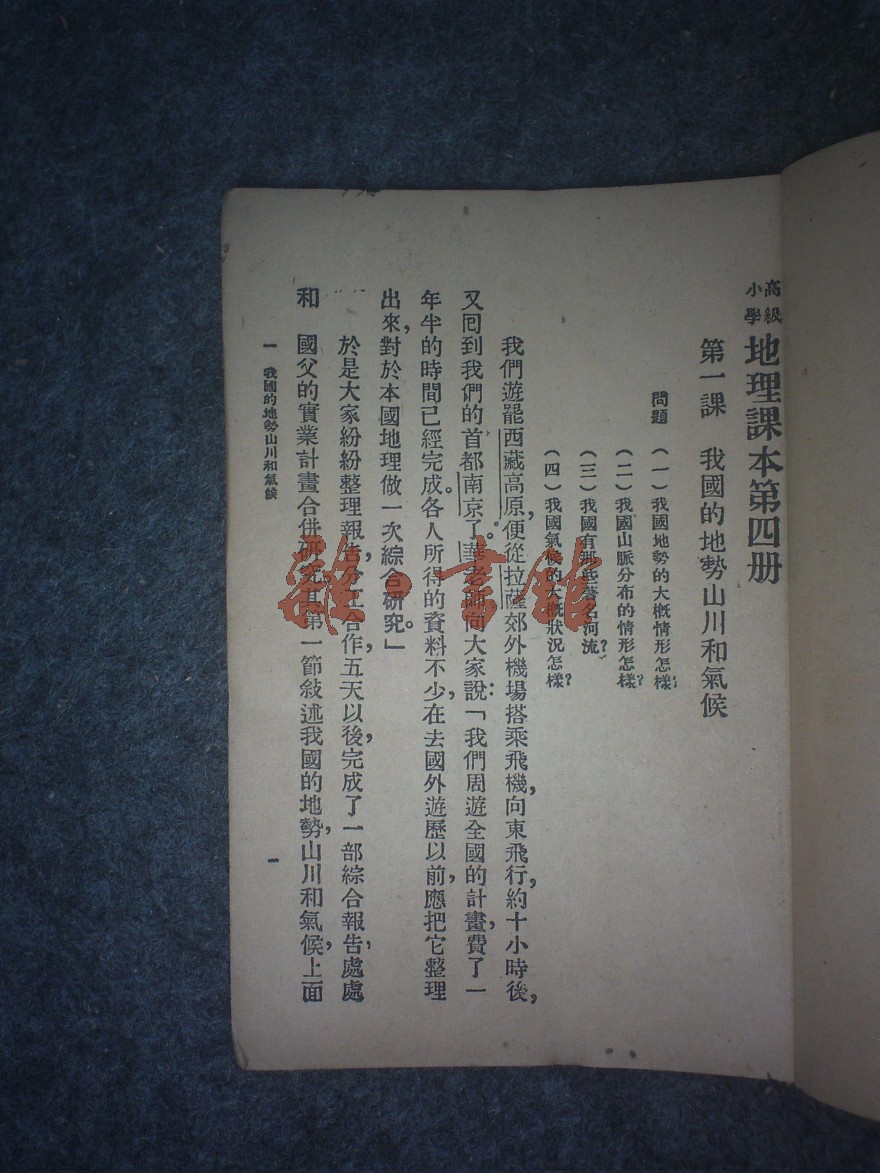 高級
小學
地理課本第四册
第一課　我國的地勢山川和氣候
問題　(一)我國地勢的大概情形怎樣?
(二)我國山脈分布的情形怎樣?
(三)我國有那些著名河流?
(四)我國氣候的大概狀況怎樣?
我們遊罷西藏高原,便從拉薩郊外機場搭乘飛機,向東飛行,約十小時後,
又囘到我們的首都南京了。華老師向大家說:「我們周遊全國的計畫,費了一
年半的時間,已經完成。各人所得的資料不少,在去國外遊歷以前,應把它整理
出來,對於本國地理做一次綜合研究。」
於是大家紛紛整理報告,分工合作,五天以後,完成了一部綜合報告,處處
和　國父的實業計畫合併研究。其第一節敍述我國的地勢,山川和氣候,上面
一　我國的地勢山川和氣候
一
雜·書館